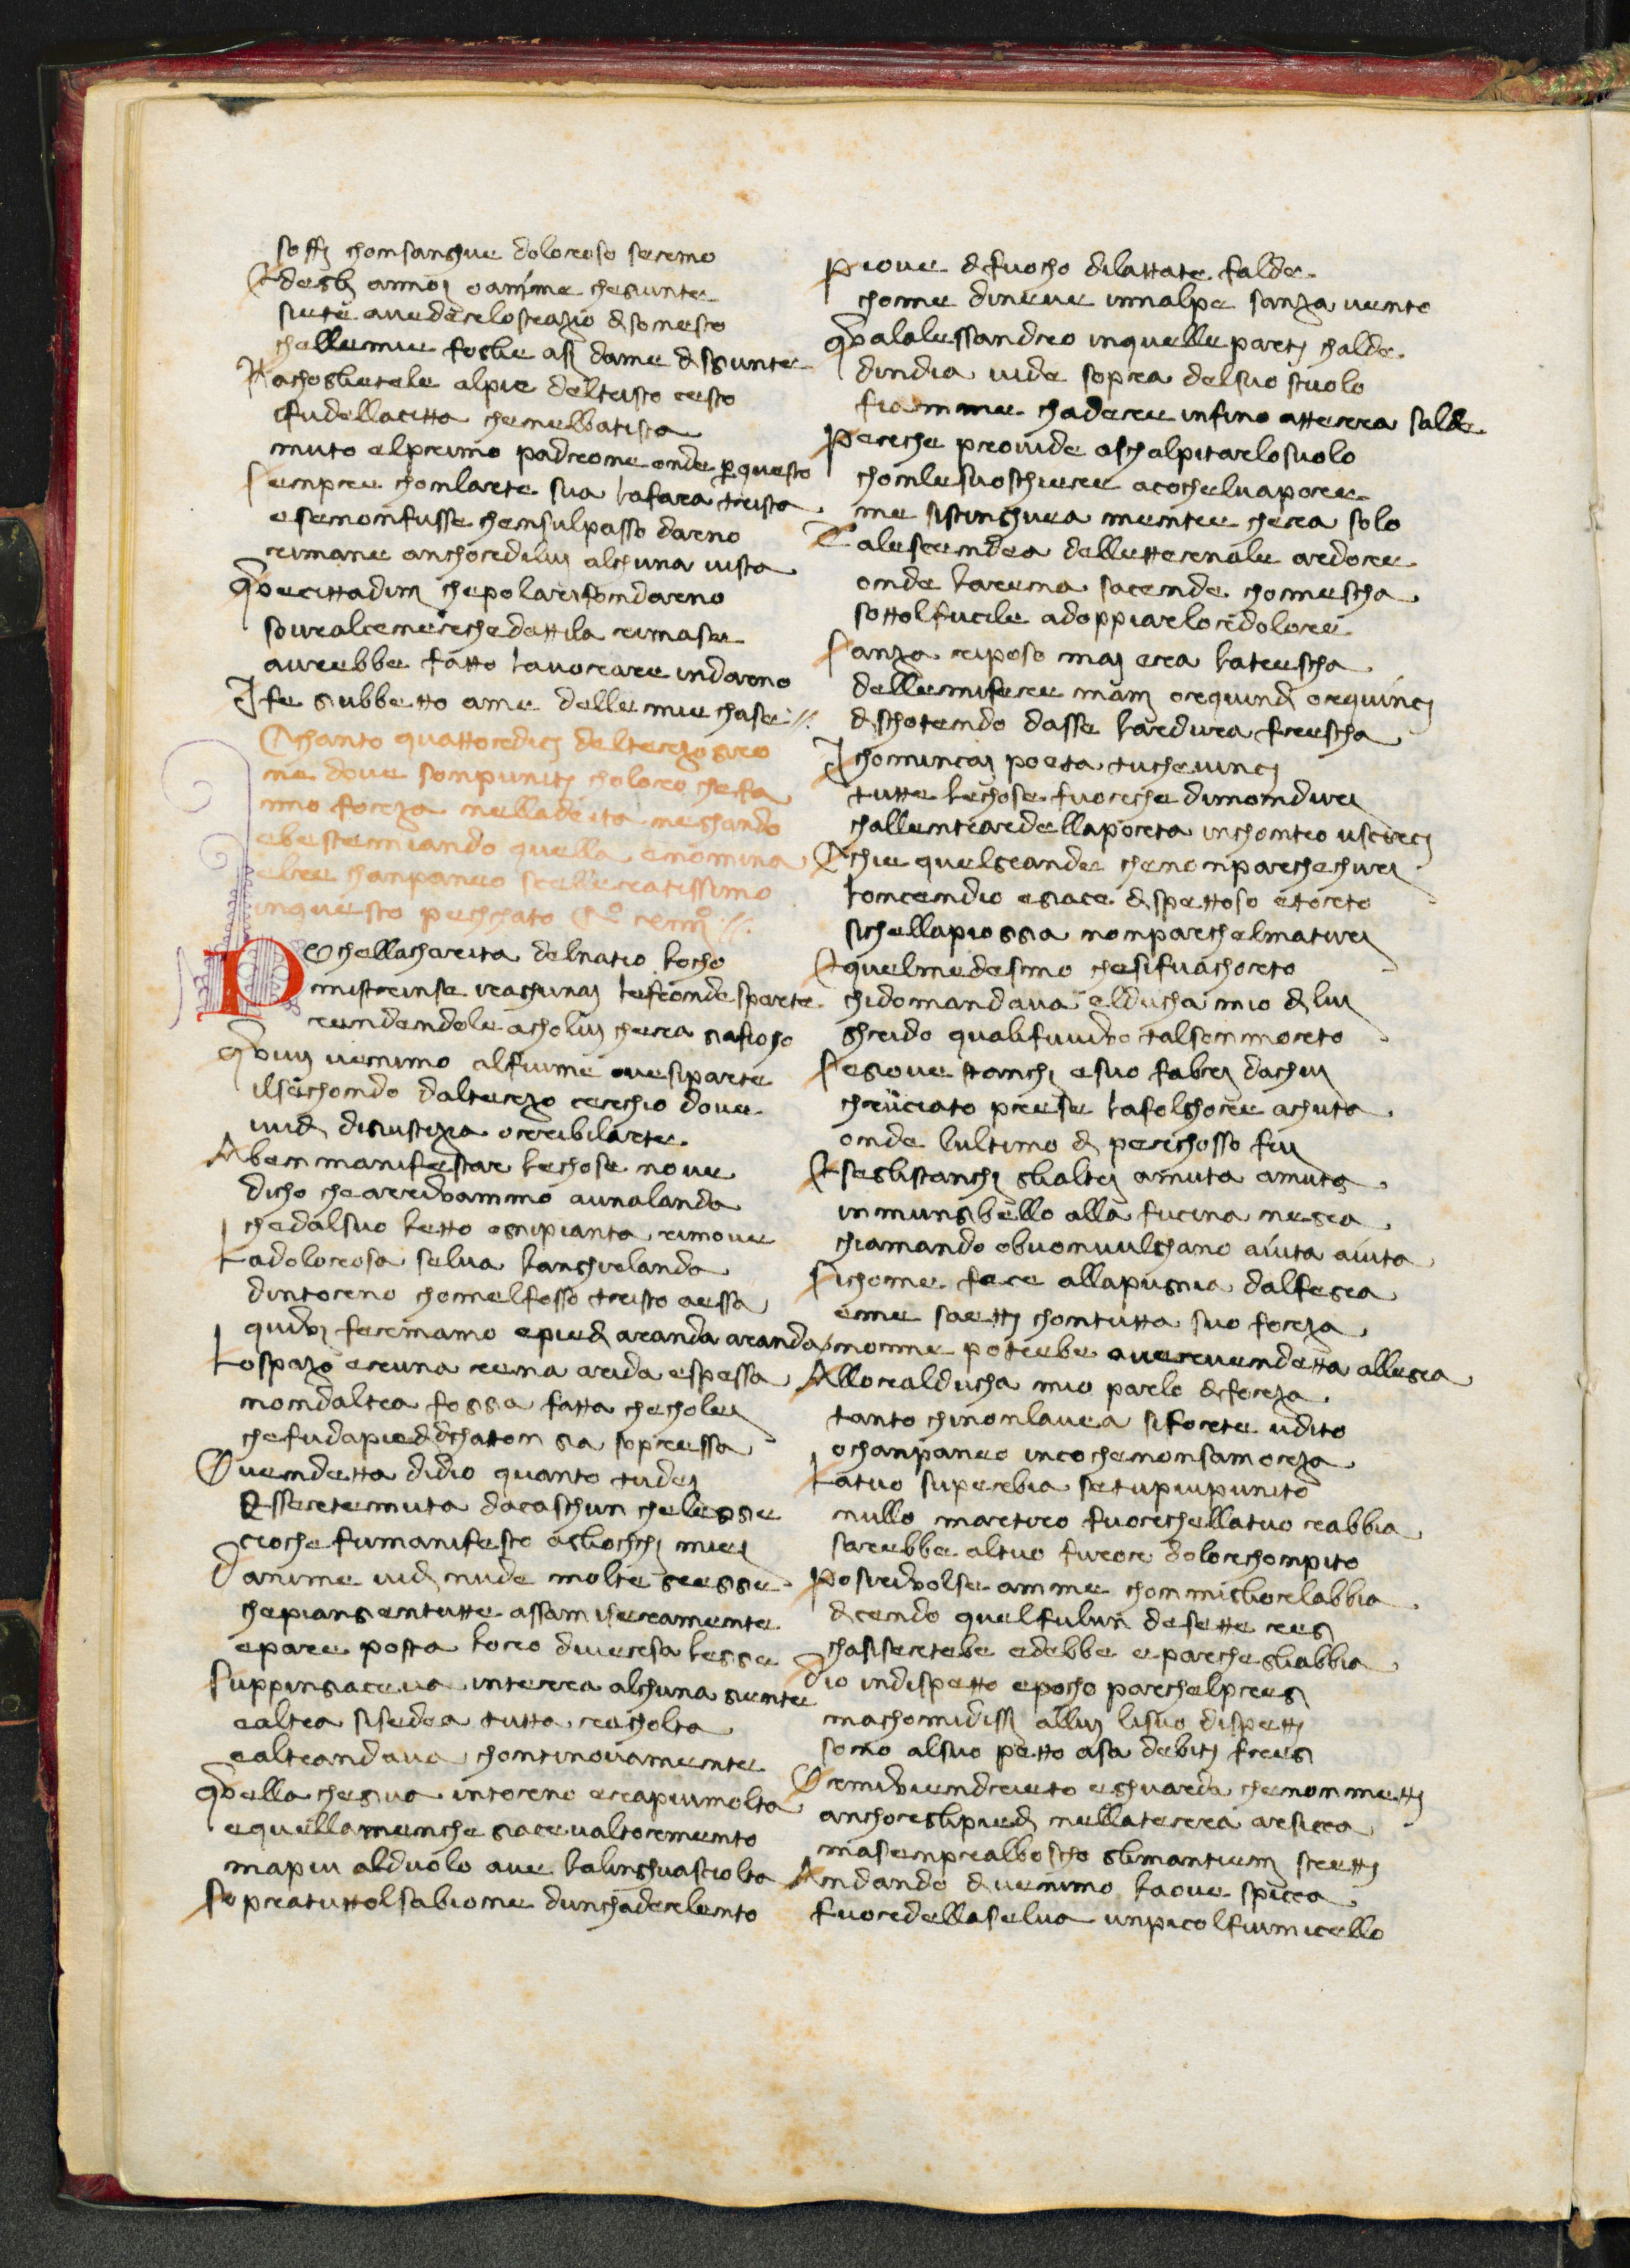 soffj chonsanghue doloroso sermo
Edeglj annoj oanime chegiunte
siete auedere lostrazio disonesto
challemie foglie asj dame disgiunte
Rachoglietele alpie deltristo cesto
ifudellacitta chenelbatista
muto elprimo padrone onde perquesto
Sempre chonlarte sua lafara trista
esenonfusse chensulpasso darno
rimane anchoredilui alchuna uista
Queicittadinj chepolarifondarno
sourealcenereche dattila rimase
aurebbe fatto lauorare indarno
Ife giubbetto ame delle mie chase //.
Chanto quattordicj delterzo giro
ne doue sonpunitj choloro chefa
nno forza nelladeita neghando
ebestemiando quella enomina
elre chanpaneo scelleratissimo
inquesto pechchato
POchellacharita delnatio locho
mistrinse raghunaj lefronde sparte
rendendole acholuj chera giafiocho
Quiuj uenimo alfiume ouesiparte
ilsechondo dalterzo cerchio doue
uidj digiustizia orribilarte
Abenmanifestar lechose noue
dicho chearriuammo aunalanda
chedalsuo letto ognipianta rimoue
Ladolorosa selua langhirlanda
dintorno chomelfosso tristo aessa
quiuj fermamo epiedj aranda aranda
Lospazo eruna rena arida espessa
nondaltra foggia fatta checholej
chefudapie dichaton gia sopressa
Ouendetta didio quanto tudej
Esseretemuta dacaschun chelegge
cioche fumanifesto agliochchj miej
Danime uidj nude molte gregge
chepiangentutte assamiseramente
epare posta loro diuersa legge
Suppingiaceua interra alchuna giente
ealtra sisedea tutta rachcholta
ealtrandaua chontinouamente
Quella chegiua intorno erapiumolta
equellamenche giaceualtormento
mapiu alduolo aue lalinghuasciolta
Sopratuttolsabione dunchaderlento
Pioue di fuocho dilattate falde
chome dineue innalpe sanza uento
Qualalessandro inquelle partj chalde
dindia uide sopra delsuo stuolo
fiamme chadere infino atterra salde
Perche prouide aschalpitarlosuolo
chonlesuoschiere acochelvapore
me sistinghuea mentre chera solo
Talescendea delletternale ardore
onde larena sacende chomescha
sottolfucile adoppiarlodolore
Sanza riposo maj era latrescha
dellemisere manj orquindj orquincj
dischotendo dasse lardura frescha
Ichomincaj poeta tucheuincj
tutte lechose fuoriche dimondurj
challentraredellaporta inchontro uscircj
Echie quelgrande chenonparchechurj
loncendio egiace dispettoso etorto
sichellapioggia nonparchelmaturj
Equelmedesimo chesifuachorto
chidomandaua elducha mio di luj
ghrido qualifuuiuo talsonmorto
Segioue stanchj esuo fabrj dachuj
chruciato prese lafolghore achuta
onde lultimo di perchosso fuj
Eseglistanchj glialtrj amuta amuta
inmungibello alla fucina negra
chiamando obuonuulchano aiuta aiuta
Sichome fece allapugnia dalfegra
eme saettj chontutta suo forza
nonne potrebe auereuendetta allegra
Alloralducha mio parlo diforza
tanto chinonlauea siforte udito
ochanpaneo incochenonsamorza
Latuo superbia setupiupunito
nullo martiro fuorichellatuo rabbia
sarebbe altuo furore dolorchonpito
Posiriuolse amme chonmigliorlabbia
dicendo quelfulun desette regj
chasisertebe edebbe eparche gliabbia
Dio indispetto epocho parchelpregj
machomidissj alluj lisuo dispettj
sono alsuo petto asa debitj fregj
Ormiuiendrieto eghuarda chenonmettj
anchoreglipiedj nellaterrea arsicca
masenprealboscho glimantienj strettj
Andando diuenimo laoue spicca
fuordellaselua unpicolfiumicello